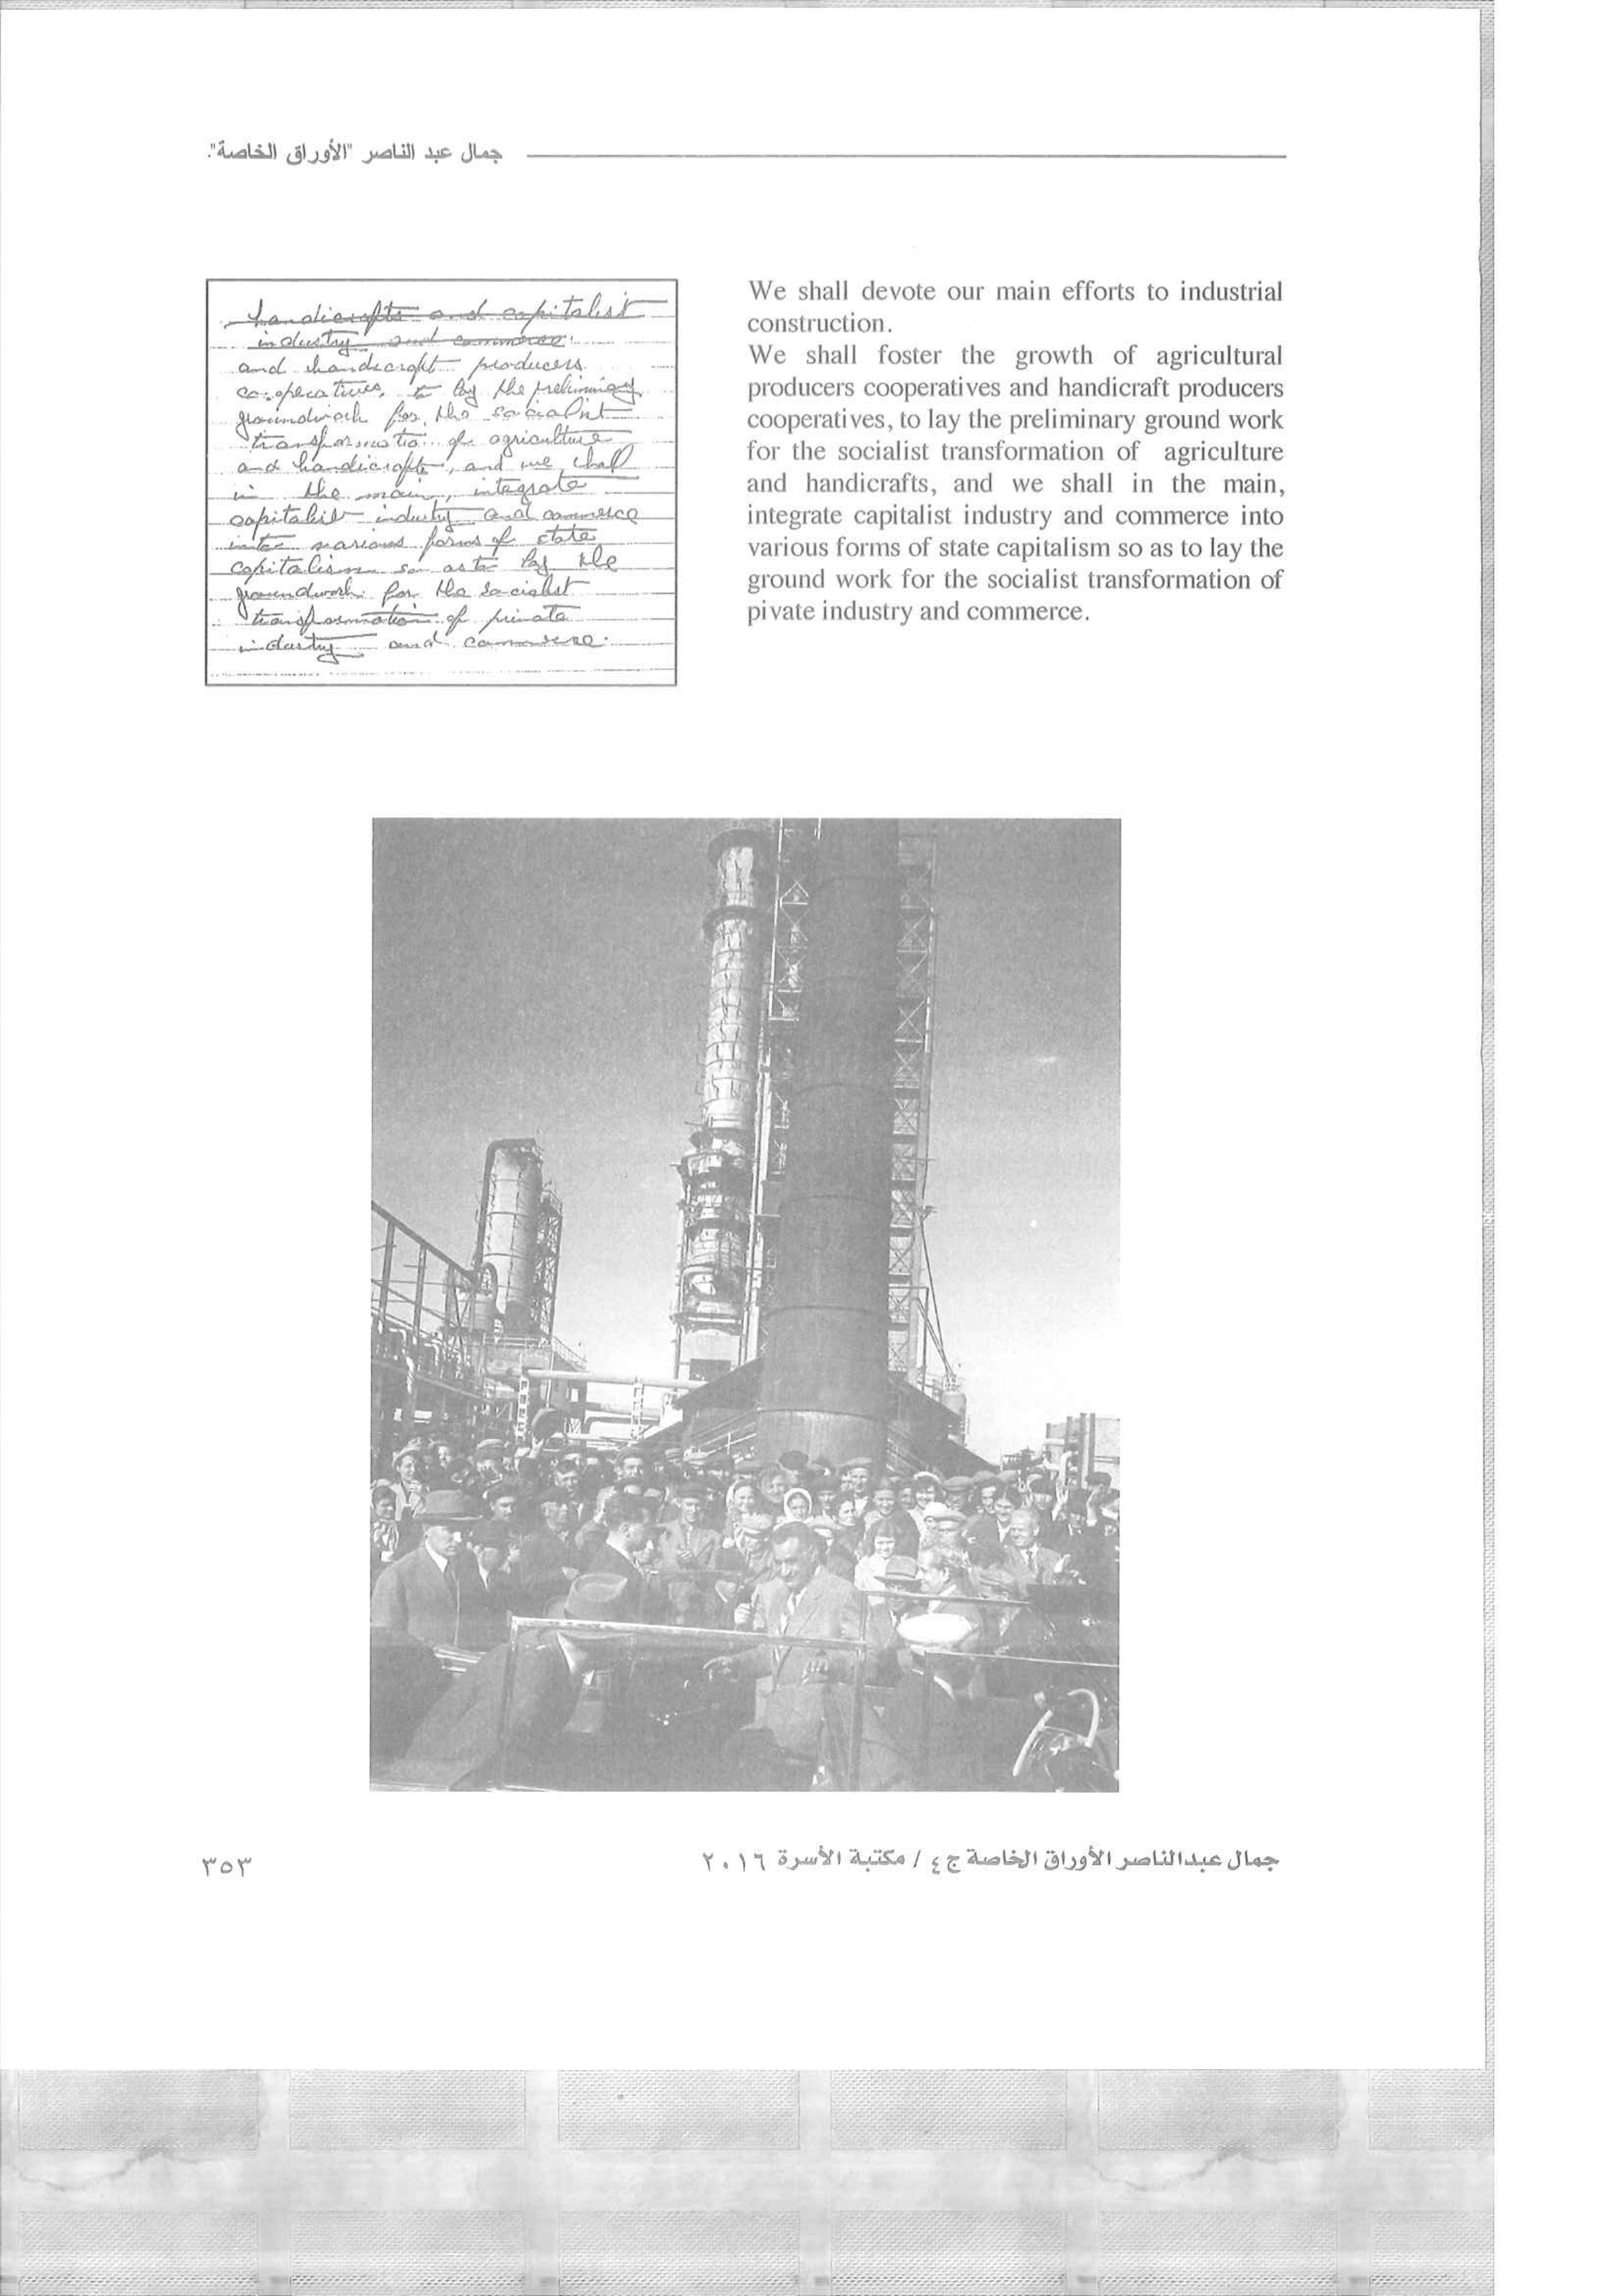 جمال عبد الناصر "الأوراق الخاصة".
handicrafts and capitalist
industry and commerce.
and handicraft producers
cooperatives, to lay the preliminary
groundwork for the socialist
transformation of agriculture
and handicrafts, and we shall
in the main, integrate
capitalist industry and commerce
into various forms of state
capitalism so as to lay the
groundwork for the socialist
transformation of private
industry and commerce.
We shall devote our main efforts to industrial
construction.
We shall foster the growth of agricultural
producers cooperatives and handicraft producers
cooperatives, to lay the preliminary ground work
for the socialist transformation of agriculture
and handicrafts, and we shall in the main,
integrate capitalist industry and commerce into
various forms of state capitalism so as to lay the
ground work for the socialist transformation of
pivate industry and commerce.
جمال عبدالناصر الأوراق الخاصة ج٤ / مكتبة الأسرة ٢٠١٦
٣٥٣